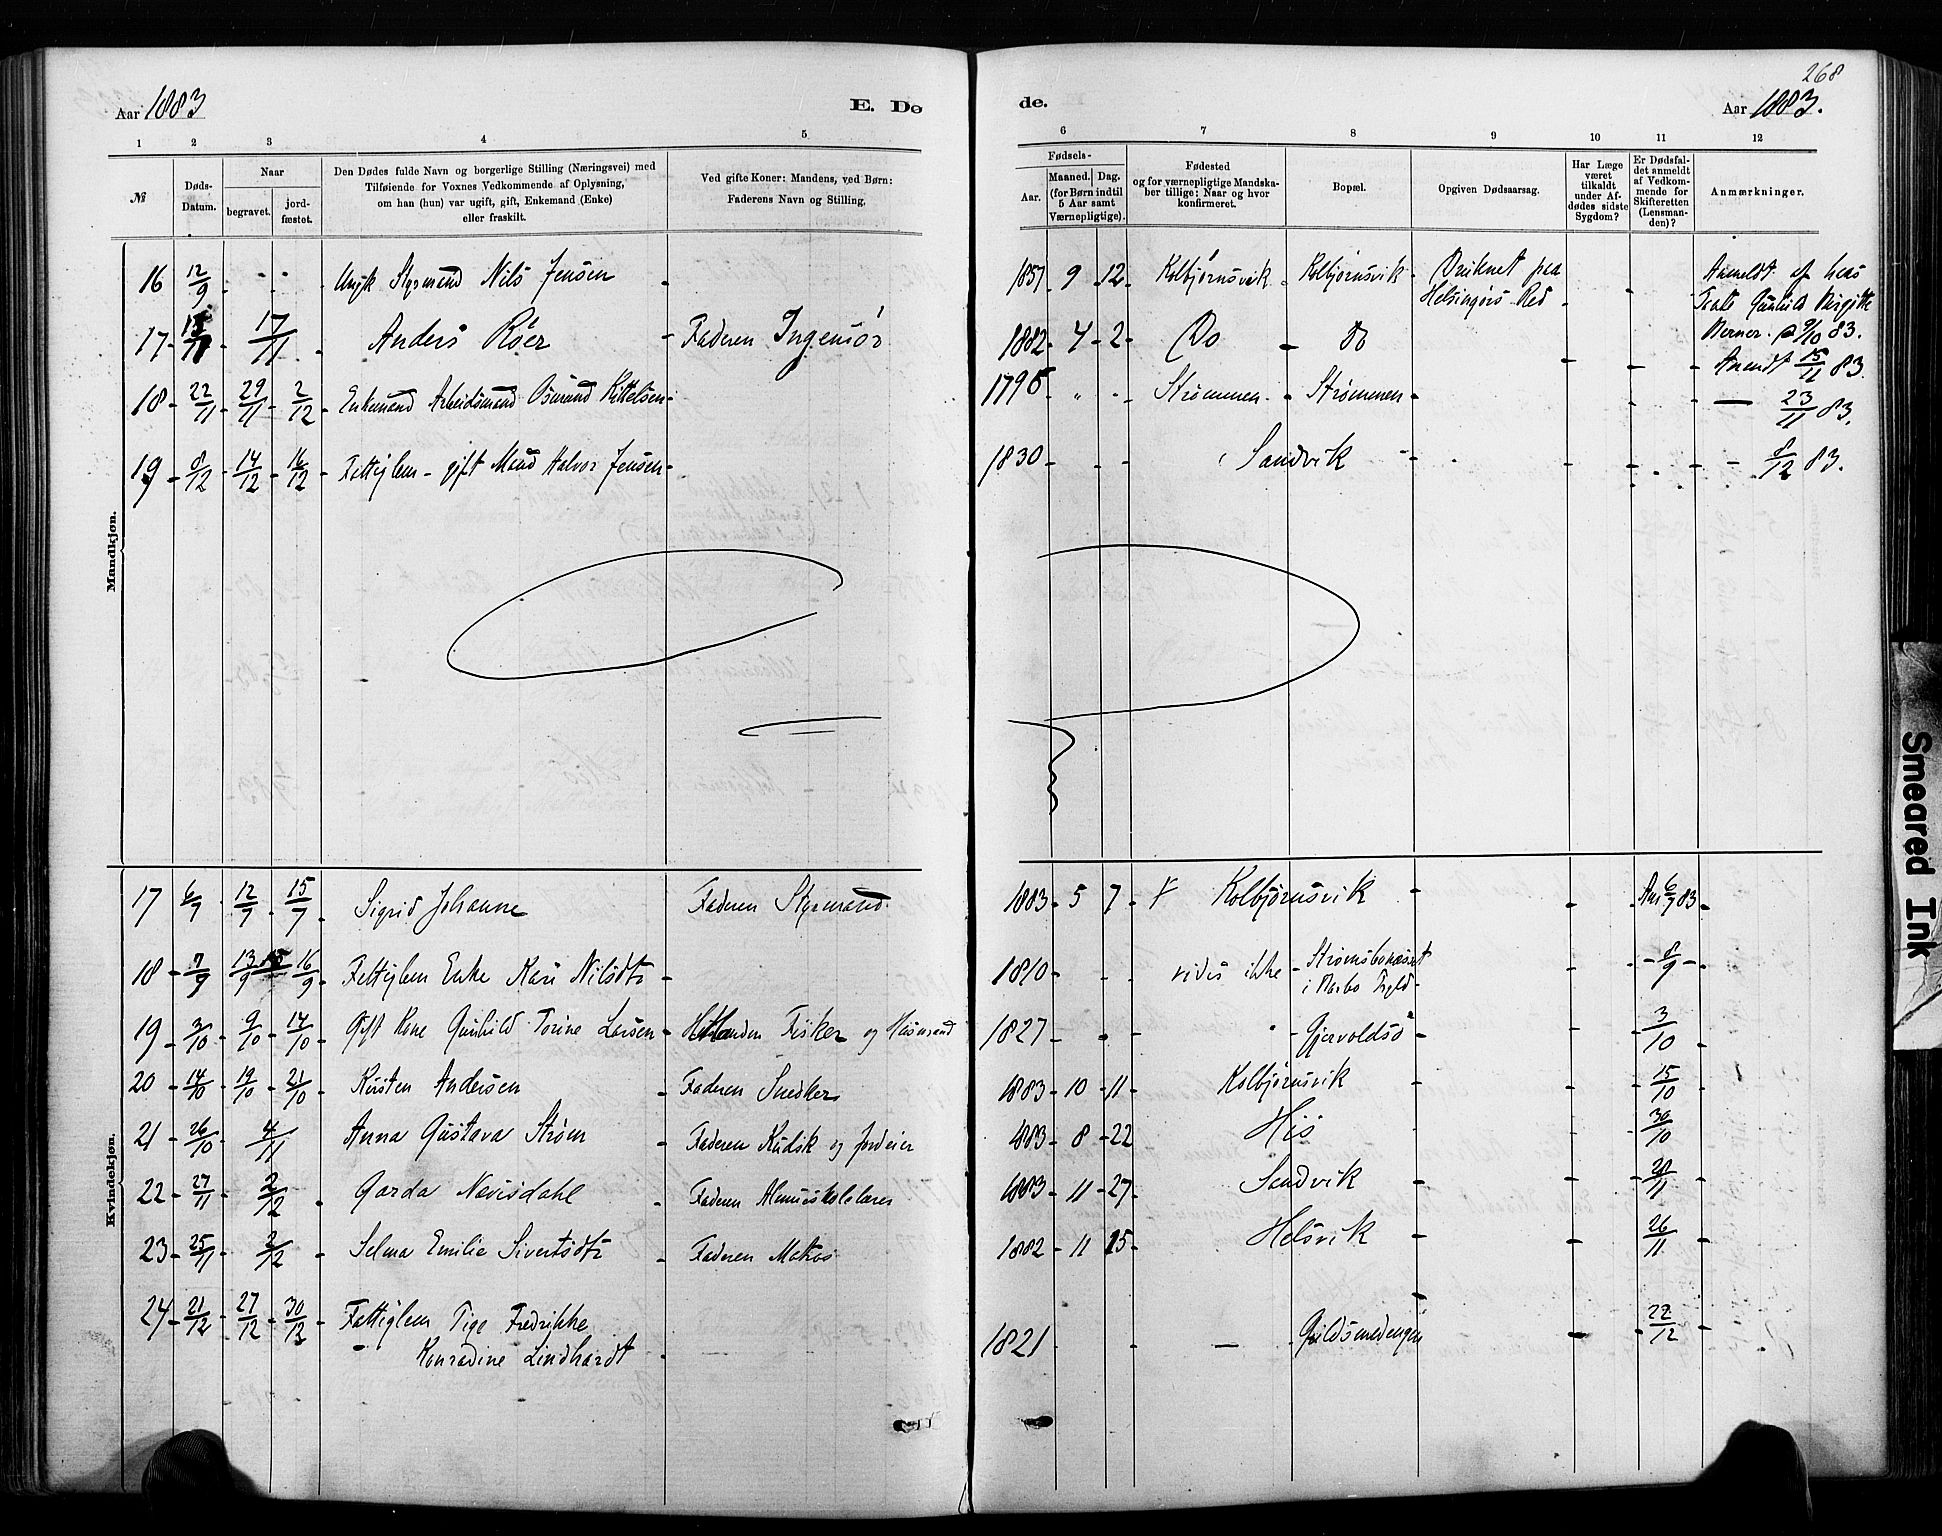 268
Aar 1883
E. Dø
de.
Aar 1883.
1 2 3 4 5 6 7 8 9 10 11 12
№
Døds-
Datum.
Naar
begravet.
jord-
fæstet.
Den Dødes fulde Navn og borgerlige Stilling (Næringsvei) med
Tilføiende for Voxnes Vedkommende af Oplysning,
om han (hun) var ugift, gift, Enkemand (Enke)
eller fraskilt.
Ved gifte Koner: Mandens, ved Børn:
Faderens Navn og Stilling.
Fødsels-
Aar.
Maaned. Dag.
(for Børn indtil
5 Aar samt
Værnepligtige).
Fødested
og for værnepligtige Mandska-
ber tillige: Naar og hvor
konfirmeret.
Bopæl.
Opgiven Dødsaarsag.
Har Læge
været
tilkaldt
under Af-
dødes sidste
Sygdom?
Er Dødsfal-
det anmeldt
af Vedkom-
mende for
Skifteretten
(Lensman-
den)?
Anmærkninger.
Mandkjøn.
16 12/9 Styrmand Nils Jensen 1857 9 12 Kolbjørnsvik Kolbjørnsvik Druknet paa
Helsingørs Red
Anmeldt af hans
17 17/11 Anders Röer Faderen Ingeniör 1882 4 2 Do Do 9/10 83.
15/11 83
18 22/11 29/11 2/12 Enkemand Arbeidsmand Osmund Kittelsen Strømmen Strømmen — 23/11 83.
19 8/12 14/12 16/12 Fattiglem gift Mand Halvor Jensen 1830 Sandvik 8/12 83.
Kvindekjøn.
17 6/7 12/7 15/7 Sigrid Johanne Faderen Styrmand 1883 5 7 Kolbjørnsvik 6/7 83
18 7/9 13/9 16/9 Fattiglem Enke Kari Nilsdtr 1810 vides ikke 8/9
19 3/10 9/10 14/10 Gift Kone Gunhild Torine Larsen Fisker og Husmand 1827 Gjervoldsø 3/10
20 14/10 19/10 21/10 Kirsten Andersen Faderen Snedker 1883 10 11 Kolbjørnsvik 15/10
21 26/10 4/11 Anna Gustava Strøm Faderen Kudsk og Jordeier 1883 8 22 His 30/10
22 27/11 2/12 Faderen Almueskolelærer 1883 11 27 Sandvik
23 25/11 2/12 Selma Emilie Sivertsdtr Faderen Matros 1882 11 15 Helsvik 26/11
24 21/12 27/12 30/12 Fattiglem Fredrikke
Konradine Lindhardt 1821 — Guldsmedengen 22/12
Smeared Ink